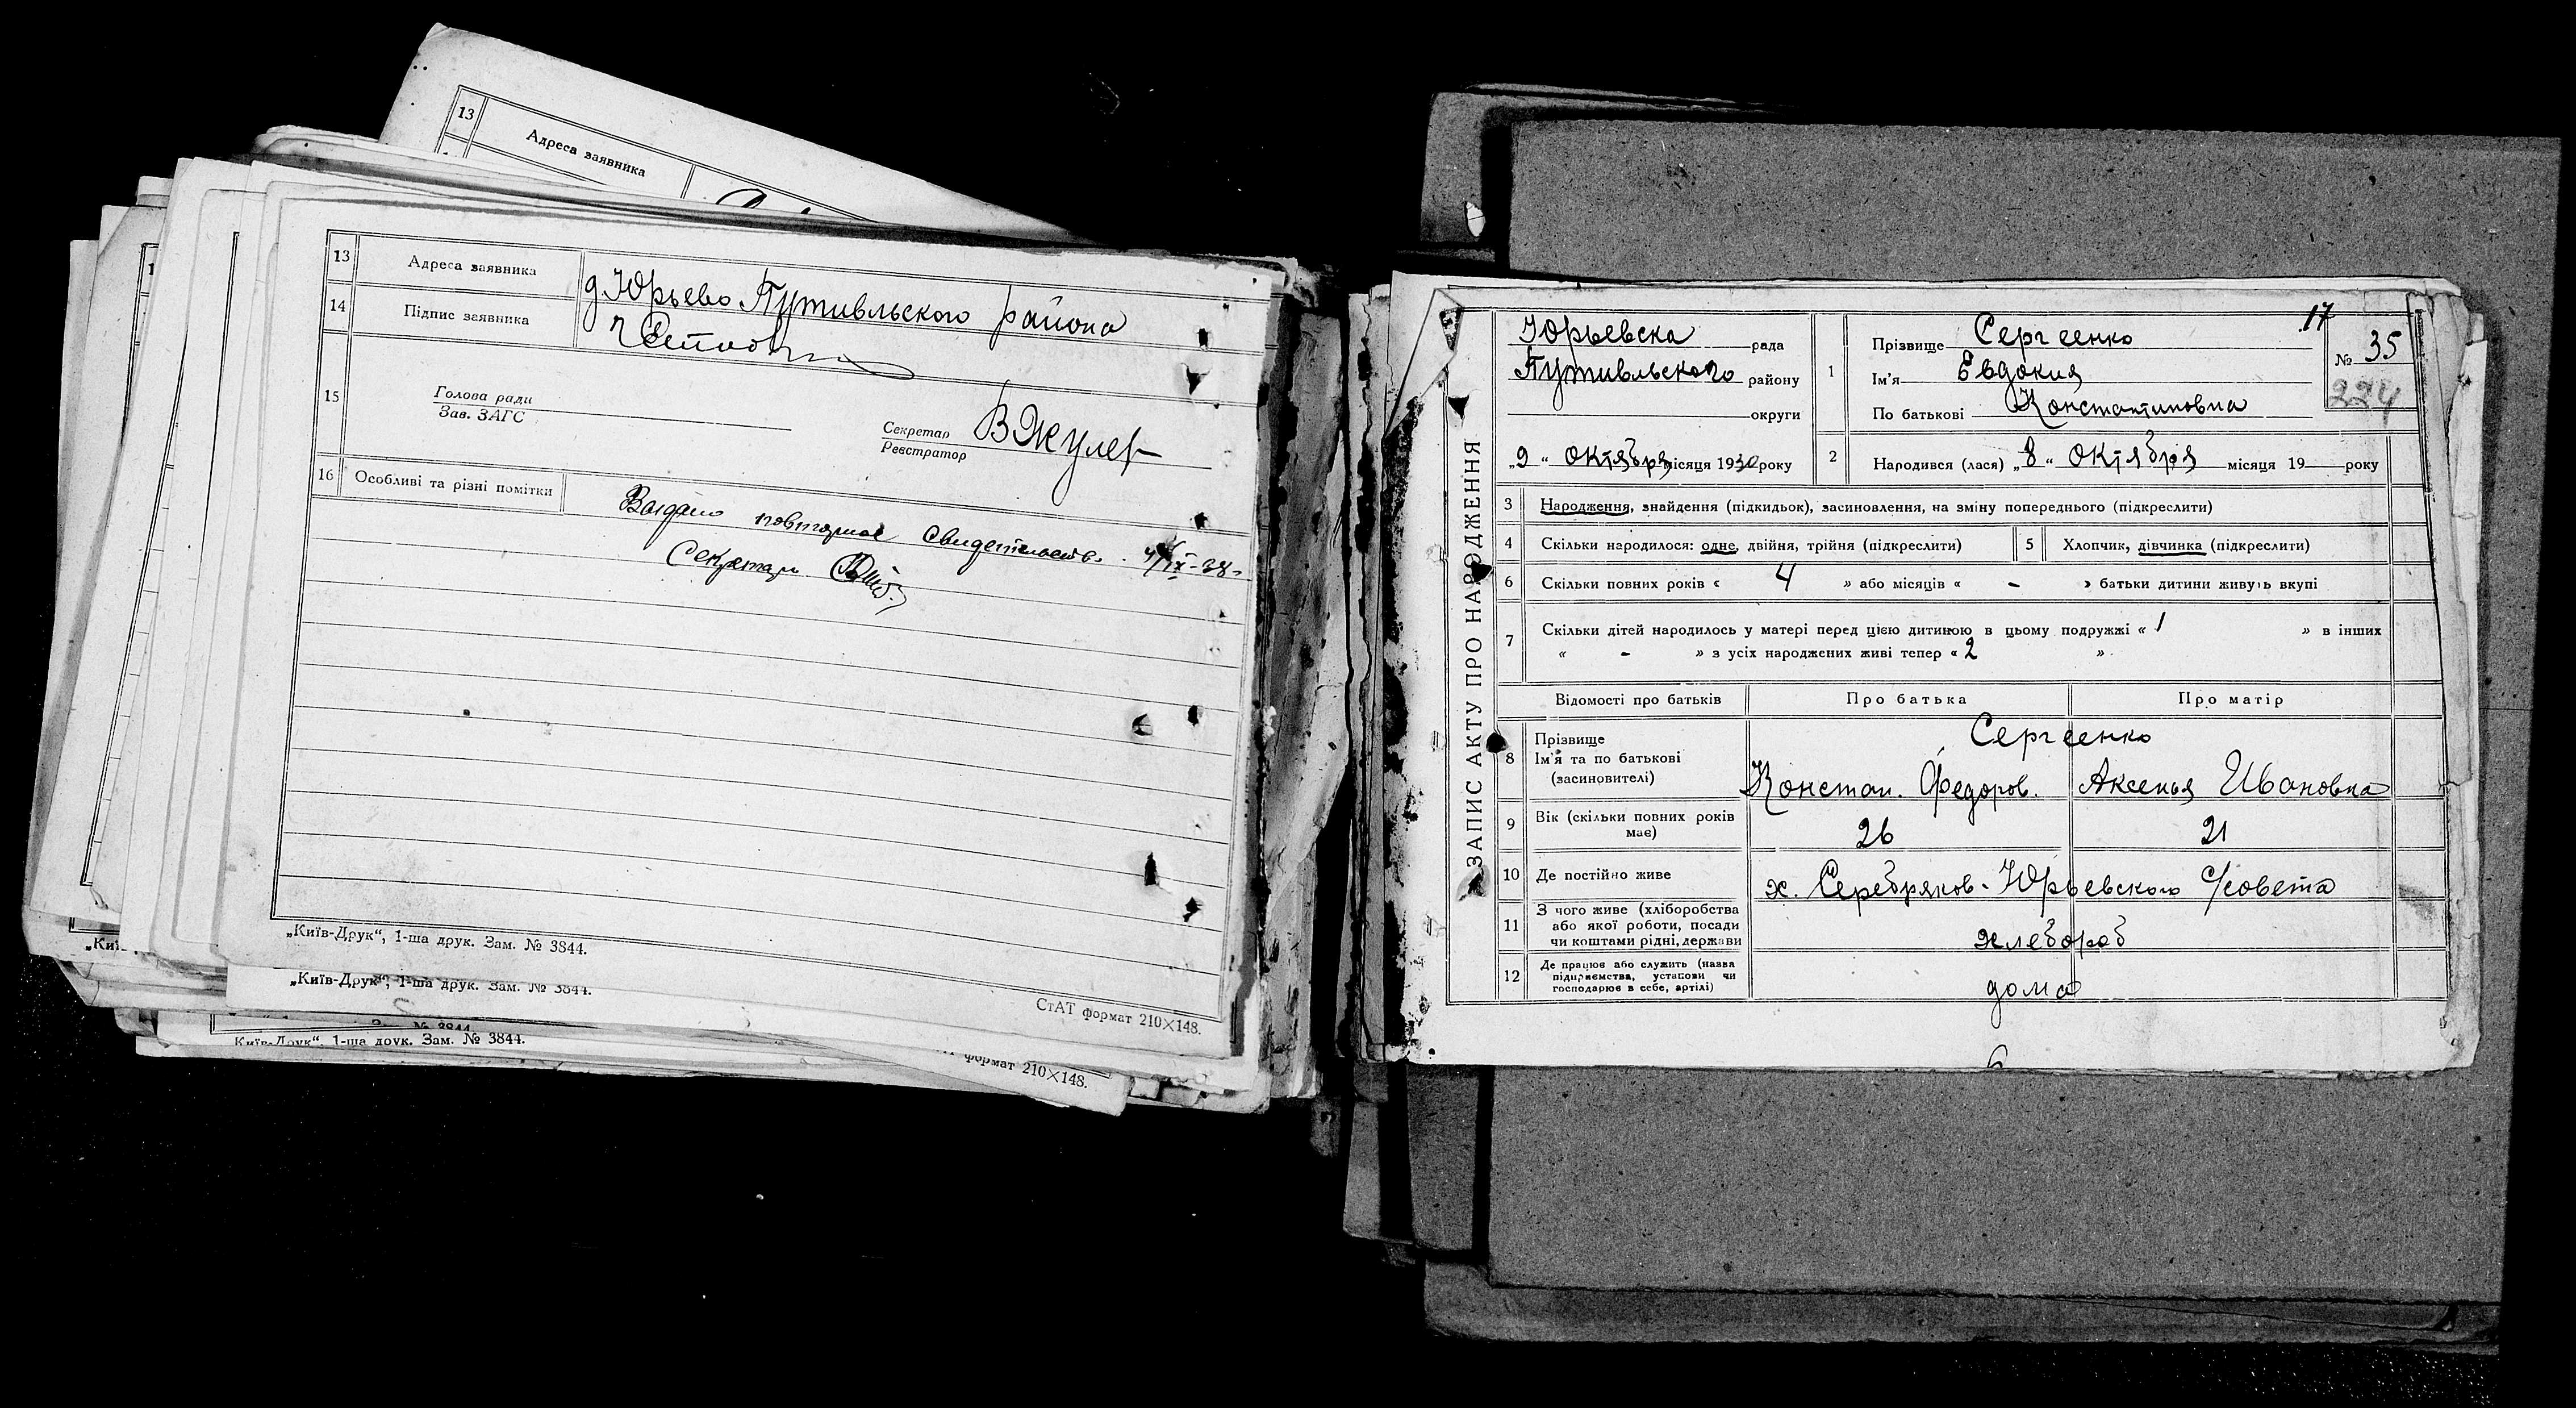 13 Адреса заявника
13 Адреса заявника д. Юрьево Путивльского района
14 Підпис заявника
15 Голова ради
Зав. ЗАГС
Секретар
Реєстратор
16 Особливі та різні помітки
Выдано повторное свидетельство. IX-38-
Секретарь
„Київ-Друк“, 1-ша друк. Зам. № 3844.
СтАТ формат 210×148.
„Київ-Друк“, 1-ша друк. Зам. № 3844.
Зам. № 3844
Київ-Друк“, 1-ша друк. Зам. № 3844.
формат 210×148.
ЗАПИС АКТУ ПРО НАРОДЖЕННЯ
17
Юрьевска рада
Путивльского району
округи
„9“ Октября місяця 1930 року
1 Прізвище Сергеенко
Ім'я Евдокия
По батькові Константиновна
№ 35
224
2 Народився (лася) „8“ Октября місяця 19 року
3 Народження, знайдення (підкидьок), засиновлення, на зміну попереднього (підкреслити)
4 Скільки народилося: одне, двійня, трійня (підкреслити) 5 Хлопчик, дівчинка (підкреслити)
6 Скільки повних років « 4 » або місяців « - » батьки дитини живуть вкупі
7 Скільки дітей народилось у матері перед цією дитиною в цьому подружжі « 1 » в інших
« - » з усіх народжених живі тепер « 2 »
Відомості про батьків Про батька Про матір
8 Прізвище Сергеенко
Ім'я та по батькові
(засиновителі) Констан. Федоров. Аксенья Ивановна
9 Вік (скільки повних років має) 26 21
10 Де постійно живе х. Серебряков. Юрьевского С/совета
11 З чого живе (хліборобства
або якої роботи, посади
чи коштами рідні, держави хлебороб
12 Де працює або служить (назва
підприємства, установи чи
господарює в себе, артілі) дома